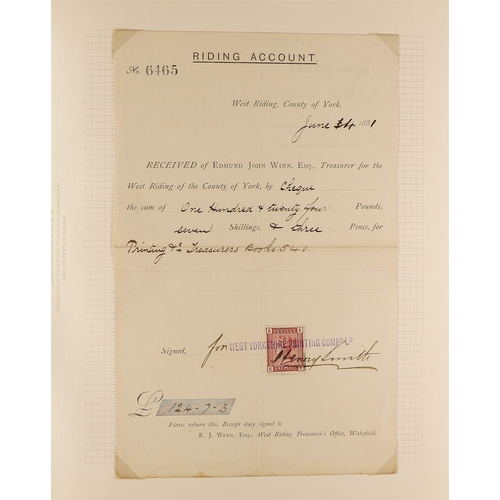 RIDING ACCOUNT.
No. 6465
West Riding, County of York,
June 1881
RECEIVED of EDMUND JOHN WINN, ESQ., Treasurer for the
West Riding of the County of York, by Cheque
the sum of One Hundred & twenty four Pounds,
seven Shillings, & three Pence, for
Printing &c Treasurers Books. 540.
POSTAGE
WEST YORKSHIRE PRINTING COMPY LD
Signed, for Henry Smith
£ 124-7-3
Please return this Receipt duly signed to
E. J. WINN, ESQ., West Riding Treasurer's Office, Wakefield.